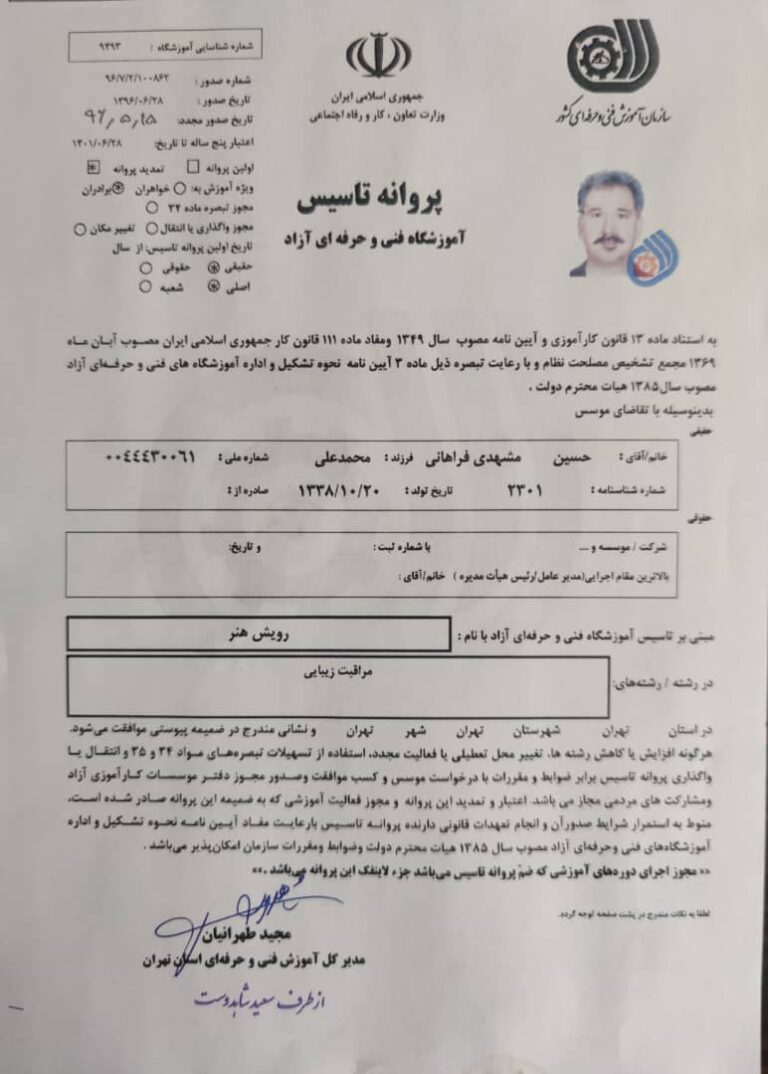 شماره شناسایی آموزشگاه : ۹۳۹۳
شماره صدور : ۹۶/۷/۲/۱۰۰۸۶۲
تاریخ صدور : ۱۳۹۶/۰۶/۲۸
تاریخ صدور مجدد:
اعتبار پنج ساله تا تاریخ: ۱۴۰۱/۰۶/۲۸
اولین پروانه تمدید پروانه
ویژه آموزش به: خواهران برادران
مجوز تبصره ماده ۳۴
مجوز واگذاری یا انتقال تغییر مکان
تاریخ اولین پروانه تاسیس: از سال
حقیقی حقوقی
اصلی شعبه
جمهوری اسلامی ایران
وزارت تعاون ، کار و رفاه اجتماعی
سازمان آموزش فنی و حرفه‌ای کشور
پروانه تاسیس
آموزشگاه فنی و حرفه ای آزاد
به استناد ماده ۱۳ قانون کارآموزی و آیین نامه مصوب سال ۱۳۴۹ ومفاد ماده ۱۱۱ قانون کار جمهوری اسلامی ایران مصوب آبان ماه
۱۳۶۹ مجمع تشخیص مصلحت نظام و با رعایت تبصره ذیل ماده ۳ آیین نامه نحوه تشکیل و اداره آموزشگاه های فنی و حرفه‌ای آزاد
مصوب سال۱۳۸۵ هیات محترم دولت ،
بدینوسیله با تقاضای موسس
حقیقی
خانم/آقای : حسین مشهدی فراهانی فرزند : محمدعلی شماره ملی : ۰۰٤٤٤۳۰۰٦۱
شماره شناسنامه : ۲۳۰۱ تاریخ تولد : ۱۳۳۸/۱۰/۲۰ صادره از :
حقوقی
شرکت / موسسه و .... با شماره ثبت : و تاریخ:
بالاترین مقام اجرایی(مدیر عامل/رئیس هیأت مدیره ) خانم/آقای :
مبنی بر تاسیس آموزشگاه فنی و حرفه‌ای آزاد با نام : رویش هنر
در رشته / رشته‌های: مراقبت زیبایی
در استان تهران شهرستان تهران شهر تهران و نشانی مندرج در ضمیمه پیوستی موافقت می‌شود.
هرگونه افزایش یا کاهش رشته ها، تغییر محل تعطیلی یا فعالیت مجدد، استفاده از تسهیلات تبصره‌های مواد ۳۴ و ۳۵ و انتقال یا
واگذاری پروانه تاسیس برابر ضوابط و مقررات با درخواست موسس و کسب موافقت وصدور مجوز دفتر موسسات کارآموزی آزاد
ومشارکت های مردمی مجاز می باشد. اعتبار و تمدید این پروانه و مجوز فعالیت آموزشی که به ضمیمه این پروانه صادر شده است،
منوط به استمرار شرایط صدورآن و انجام تعهدات قانونی دارنده پروانه تاسیس بارعایت مفاد آیین نامه نحوه تشکیل و اداره
آموزشگاه‌های فنی وحرفه‌ای آزاد مصوب سال ۱۳۸۵ هیات محترم دولت وضوابط ومقررات سازمان امکان‌پذیر می‌باشد .
«« مجوز اجرای دوره‌های آموزشی که ضم پروانه تاسیس می‌باشد جزء لاینفک این پروانه می‌باشد .»»
لطفا به نکات مندرج در پشت صفحه توجه گردد.
مجید طهرانیان
مدیر کل آموزش فنی و حرفه‌ای استان تهران
از طرف سعید شاهدوست